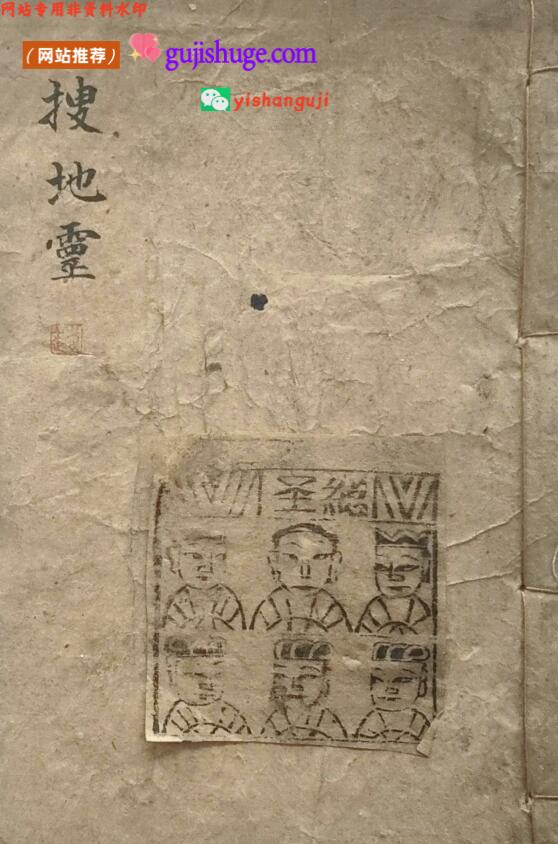 网站专用非资料水印
（网站推荐） gujishuge.com
yishanguji
搜
地
靈
圣総